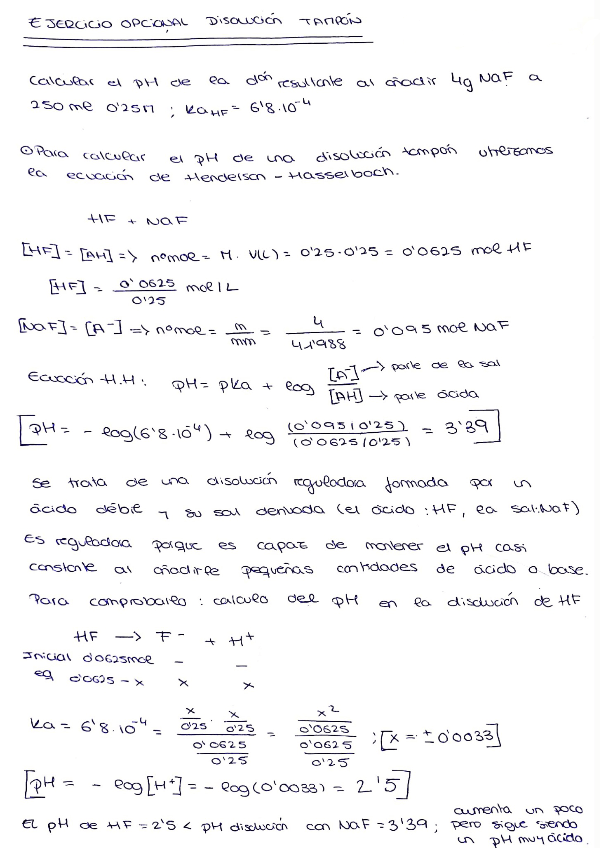 EJERCICIO OPCIONAL DISOLUCIÓN TAMPÓN
Calcular el pH de la dón resultante al añadir 4g NaF a
250 ml 0'25M ; KaHF = 6'8·10⁻⁴
⊙Para calcular el pH de una disolución tampón utilizamos
la ecuación de Hendelson - Hasselbach.
HF + NaF
[HF] = [AH] => nºmol = M · V(L) = 0'25 · 0'25 = 0'0625 mol HF
[HF] = 0'0625 / 0'25 mol/L
[NaF] = [A⁻] => nºmol = m / mm = 4 / 41'988 = 0'095 mol NaF
Ecuación H.H : pH = pKa + log [A⁻] → parte de la sal / [AH] → parte ácida
[pH = - log(6'8·10⁻⁴) + log (0'095/0'25) / (0'0625/0'25) = 3'39]
Se trata de una disolución reguladora formada por un
ácido débil y su sal derivada (el ácido : HF, la sal: NaF)
Es reguladora porque es capaz de mantener el pH casi
constante al añadirle pequeñas cantidades de ácido o base.
Para comprobarlo : calculo del pH en la disolución de HF
HF → F⁻ + H⁺
Inicial 0'0625mol - -
eq 0'0625 - x x x
Ka = 6'8·10⁻⁴ = x/0'25 · x/0'25 / 0'0625/0'25 = x²/0'0625 / 0'0625/0'25 ; [x = ± 0'0033]
[pH = - log [H⁺] = - log (0'0033) = 2'5]
El pH de HF = 2'5 < pH disolución con NaF = 3'39 ; aumenta un poco
pero sigue siendo
un pH muy ácido.